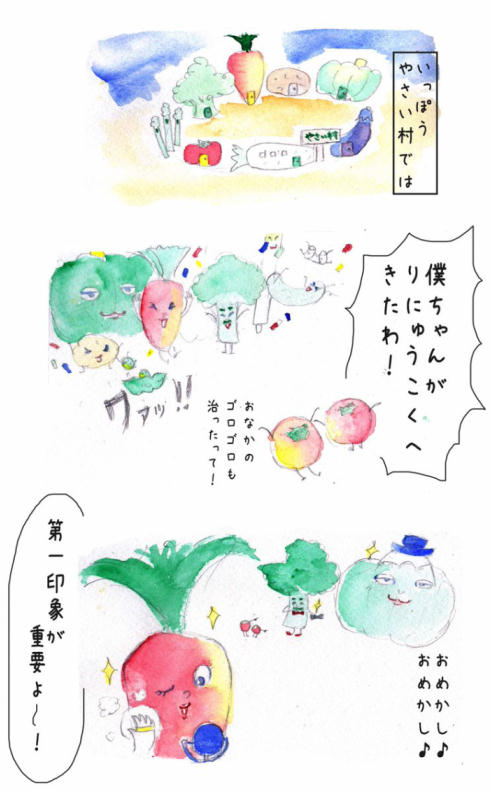 いっぽう
やさい村では
やさい村
僕ちゃんが
りにゅうこくへ
きたわ！
ワァッ!!
おなかの
ゴロゴロも
治ったって！
第一印象が
重要よ～！
おめかし♪
おめかし♪